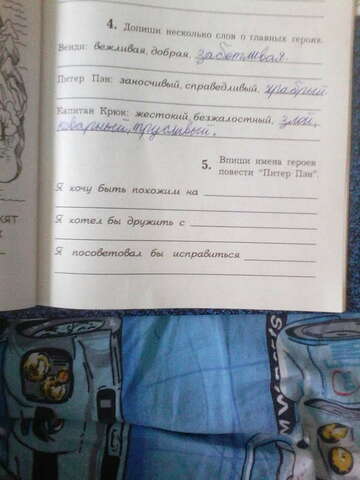 4. Допиши несколько слов о главных героях.
Венди: вежливая, добрая, заботливая
Питер Пэн: заносчивый, справедливый, храбрый
Капитан Крюк: жестокий, безжалостный, злой,
коварный, трусливый.
5. Впиши имена героев
повести "Питер Пэн".
Я хочу быть похожим на
Я хотел бы дружить с
Я посоветовал бы исправиться